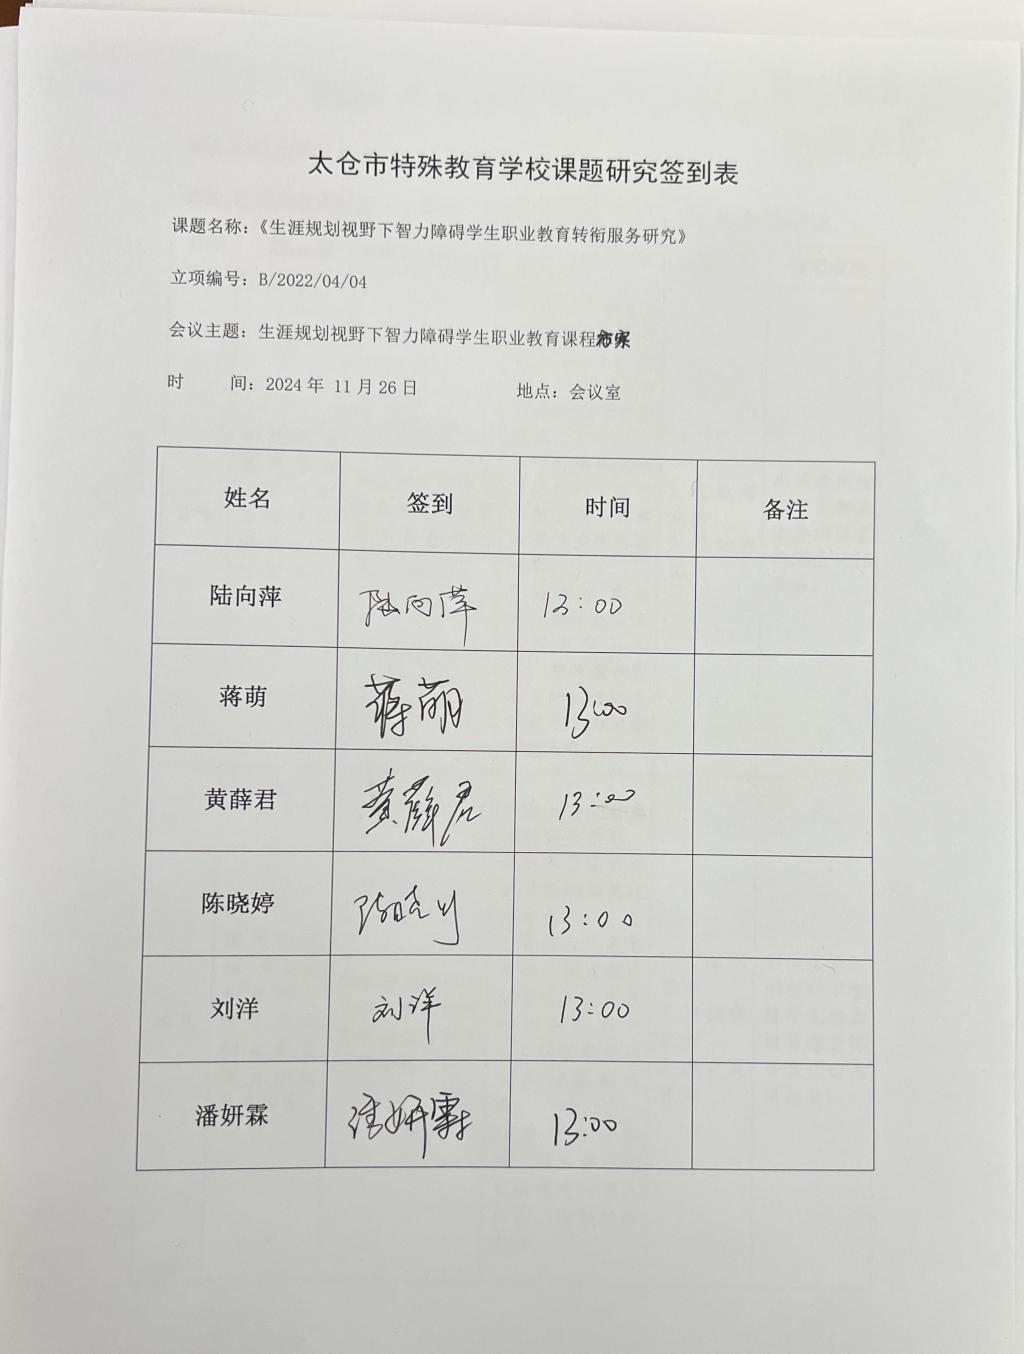 太仓市特殊教育学校课题研究签到表
课题名称：《生涯规划视野下智力障碍学生职业教育转衔服务研究》
立项编号：B/2022/04/04
会议主题：生涯规划视野下智力障碍学生职业教育课程
时 间：2024年 11月26日 地点：会议室
姓名 签到 时间 备注
陆向萍 陆向萍 13:00
蒋萌 蒋萌 13:00
黄薛君 黄薛君 13:00
陈晓婷 陈晓婷 13:00
刘洋 刘洋 13:00
潘妍霖 潘妍霖 13:00